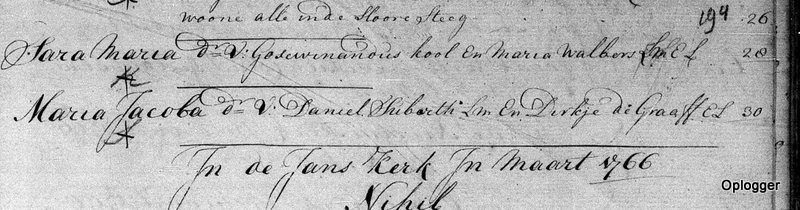 woone alle inde Stoore Steeg 194 26
Sara Maria dr V: Gosewinanous kool En Maria Walbers Lm E L 28
Maria Jacoba dr V: Daniel Lm En Dirkje de Graaff E L 30
In de Jans Kerk In Maart 1766
Nihil
Oplogger